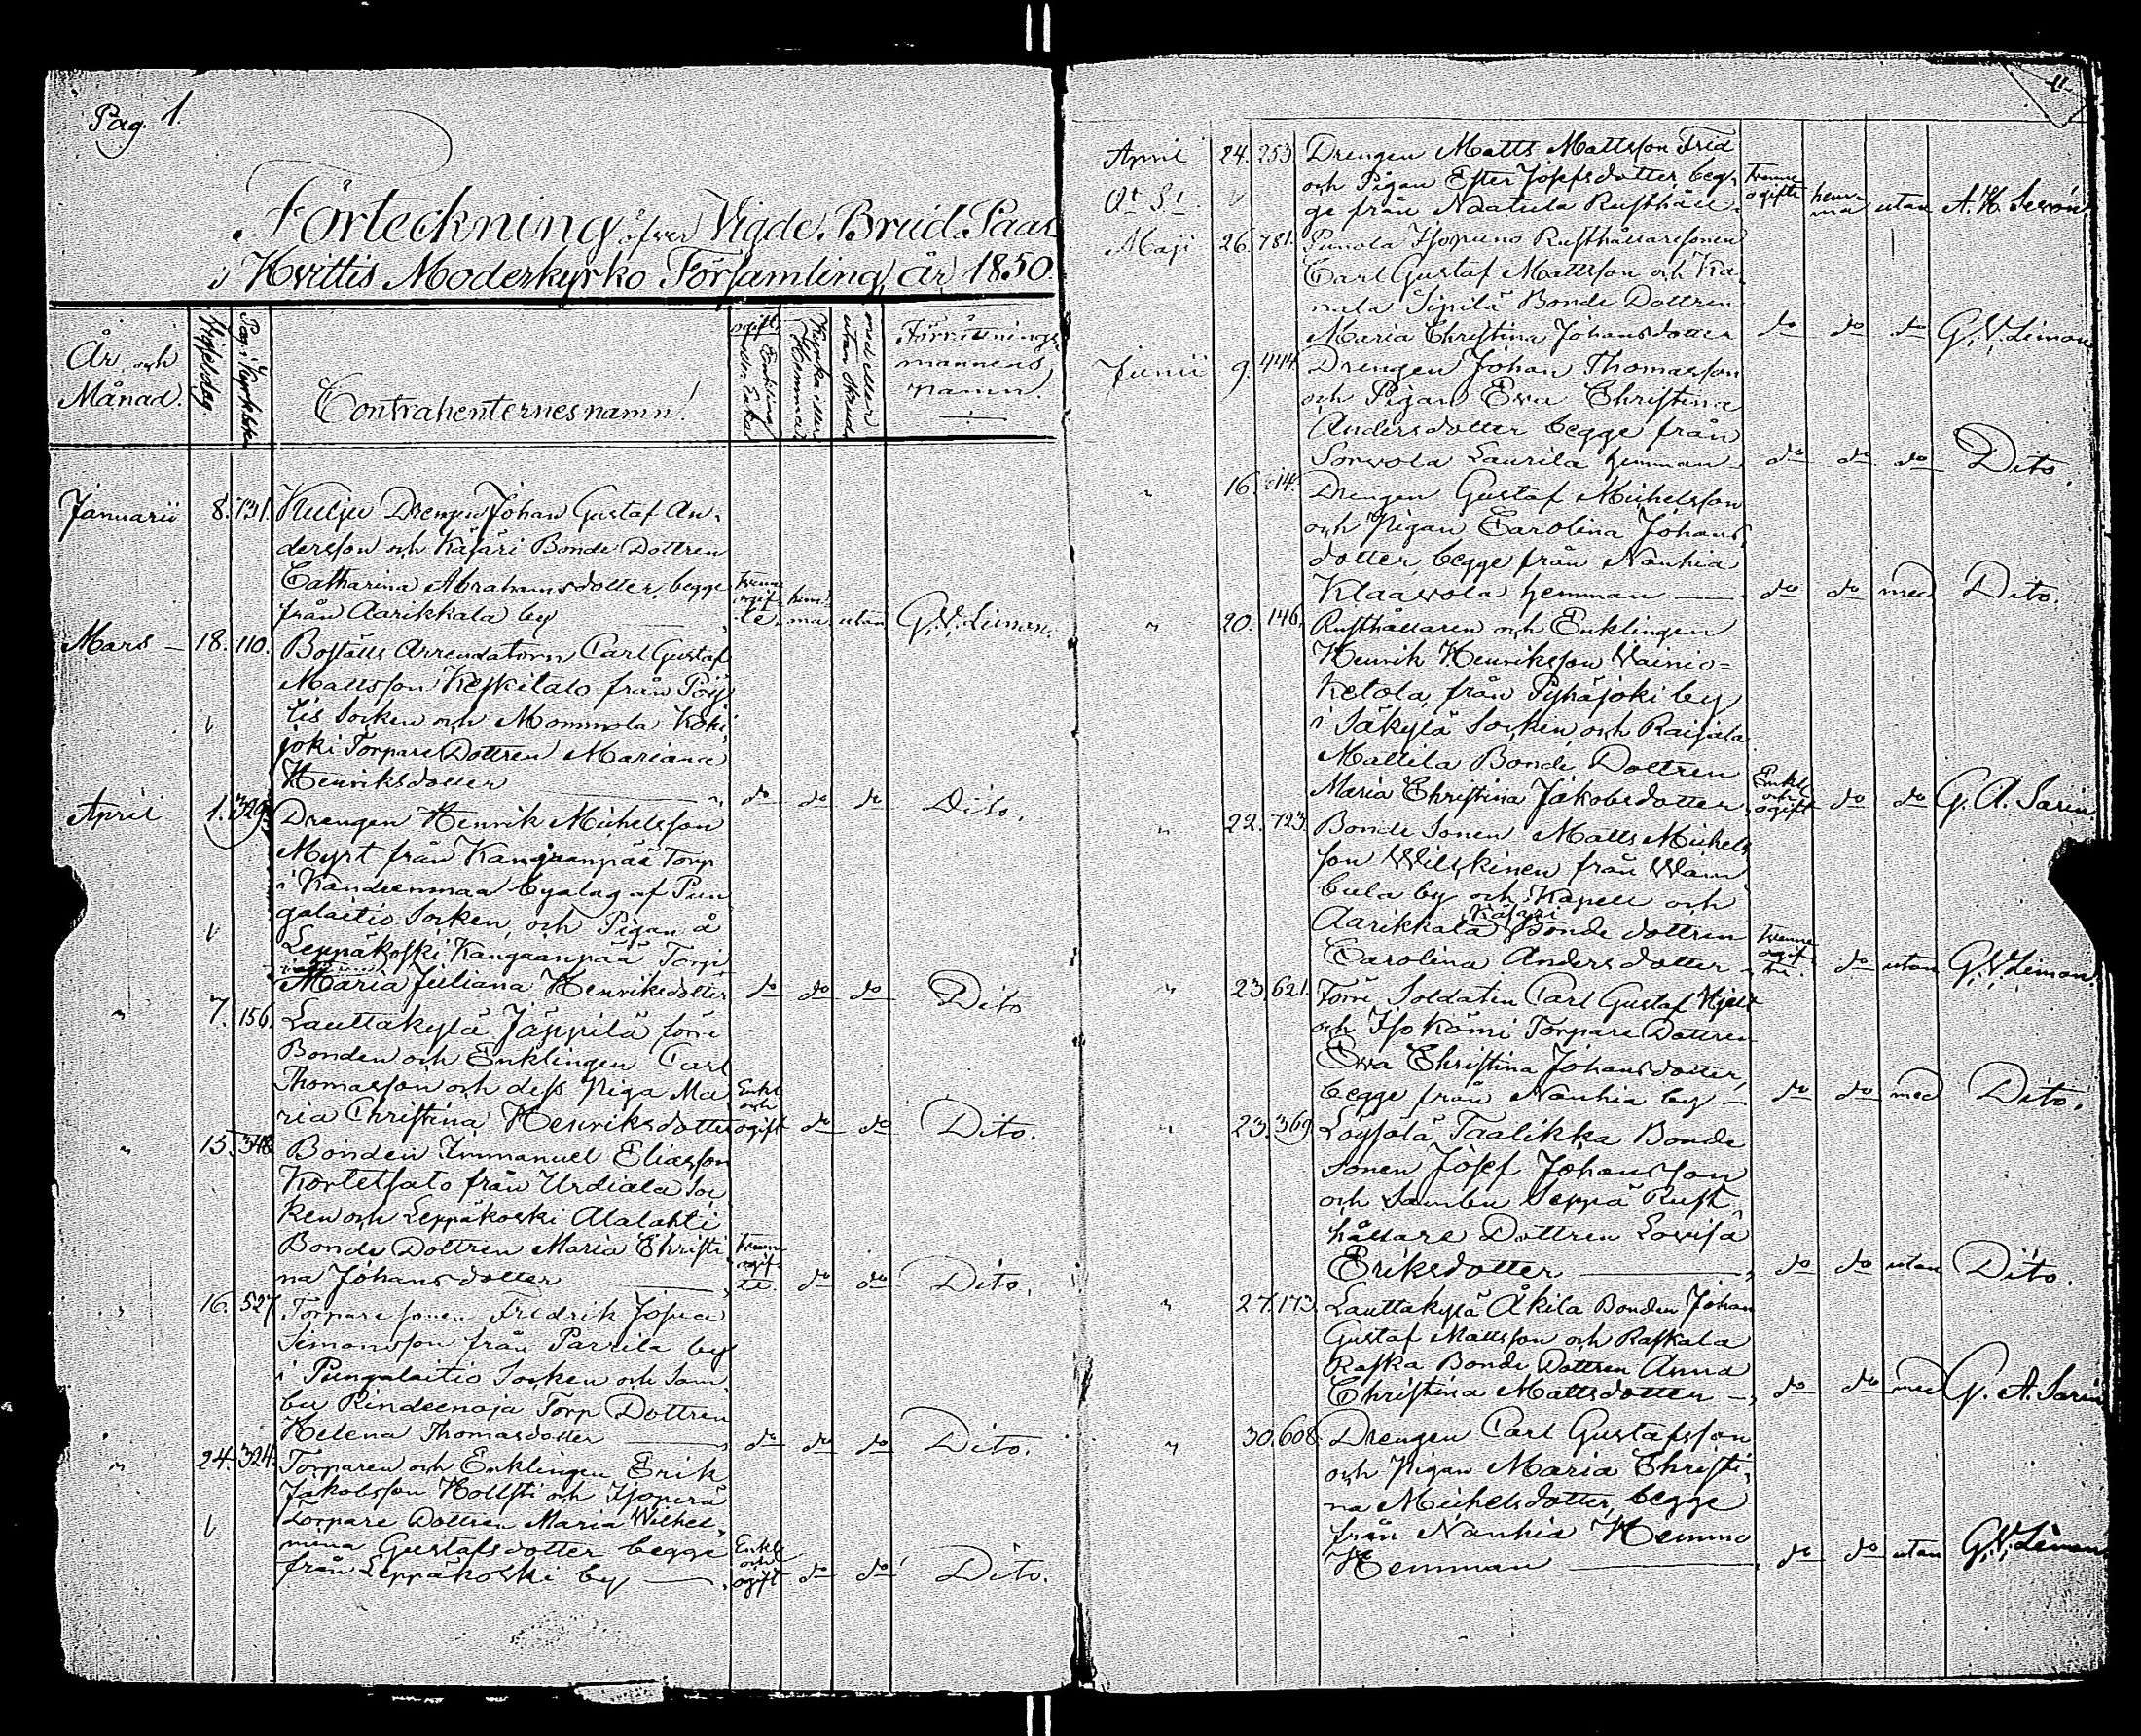 Pag. 1.
Förteckning öfver Vigde Brud Paar
i Hvittis Moderkyrko Församling, år 1850.
År och Månad.
Vigselsdag
Pag. i Kyrkobok
Contrahenternes namn!
ogift, Enkling eller Enka
Kyrka eller Hemma
med eller utan Skrud
Förrättnings
mannens
namn.
Januarii 8. 131. Kulju Drengen Johan Gustaf An-
dersson och Käfäri Bonde Dottren
Catharina Abrahamsdotter, begge
från Aarikkala by trenne ogifte hemma utan G. V. Liman.
Mars 18. 110. Boställs Arrendatorn Carl Gustaf
Mattsson Keskitalo från Pöy-
tis Socken och Mommola Koki
joki Torpare Dottren Mariana
Henriksdotter do do do Dito.
April 1. 329. Drengen Henrik Michelsson
Myrt från Kangaanpää Torp
i Kandeenmaa byalag af Pun
galaitio Socken, och Pigan å
Leppäkoski Kangaanpää Torp
Maria Juliana Henriksdotter do do do Dito
" 7. 156. Lauttakylä Jäppilä förre
Bonden och Enklingen Carl
Thomasson och dess Piga Ma
ria Christina Henriksdotter Enkl och ogift do do Dito.
" 15. 348. Bonden Immanuel Eliasson
Kortetsalo från Urdiala Soc
ken och Leppäkoski Alalahti
Bonde Dottren Maria Christi
na Johansdotter trenne ogifte. do do Dito.
" 16. 527 Torpare sonen Fredrik Josua
Simonsson från Parrila by
i Pungalaitio Socken och Sam
bu Rindeenoja Torp Dottren
Helena Thomasdotter do do do Dito.
" 24. 324. Torparen och Enklingen Erik
Jakobsson Hollsti och Isoperä
Torpare Dottren Maria Wilhel-
mina Gustafsdotter begge
från Leppäkoski by Enkl och ogift do do Dito.
April 24. 253 Drengen Matts Mattsson Frid
och Pigan Ester Josefsdotter beg-
ge från Naatula Rusthåll. trenne ogifte hemma utan A. H. Levón
Maji 26. 781. Punola Isopuno Rusthållaresonen
Carl Gustaf Mattsson och Ka-
nala Sipilä Bonde Dottren
Maria Christina Johansdotter do do do G. V. Liman
Junii 9. 444. Drengen Johan Thomasson
och Pigan Eva Christina
Andersdotter begge från
Sorvola Laurila hemman do do do Dito.
" 16. 614. Drengen Gustaf Michelsson
och Pigan Carolina Johans
dotter, begge från Nanhia
Klaavola hemman do do med Dito.
" 20. 146. Rusthållaren och Enklingen
Henrik Henriksson Vainio=
Ketola, från Pyhäjoki by
i Säkylä Socken, och Raijala
Mattila Bonde Dottren
Maria Christina Jakobsdotter Enkl och ogift do do G. A. Sarin
" 22. 723. Bonde Sonen Matts Michels
son Wilskinen från Wam
bula by och Kapell och
Aarikkala Käfäri Bonde dottren
Carolina Andersdotter trenne ogifte do utan G. V. Liman.
" 23. 621. Förre Soldaten Carl Gustaf Hjelt
och Iso Kömi Torpare Dottren
Eva Christina Johansdotter,
begge från Nanhia by do do med Dito.
" 23. 369. Loysola Taalikka Bonde
Sonen Josef Johansson
och Sambu Seppä Rust
hållare Dottren Lovisa
Eriksdotter do do utan Dito.
" 27. 173. Lauttakylä Äkila Bonden Johan
Gustaf Mattsson och Raskala
Raska Bonde Dottren Anna
Christina Mattsdotter do do med G. A. Sarin
" 30. 608. Drengen Carl Gustafsson
och Pigan Maria Christi-
na Michelsdotter, begge
från Nanhia Hemmo
Hemman do do utan G. V. Liman